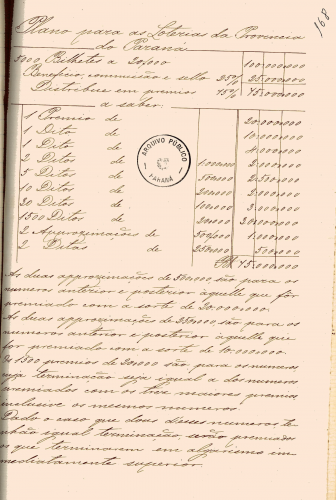 168
Plano para as Loterias da Provincia
do Paraná
5000 Bilhetes a 20\000 100.000.000
Beneficio, commissão e sello 25% 25.000.000
Distribue em premios 75% 75.000.000
a saber:
1 Premio de 20.000.000
1 Dito de 10.000.000
1 Dito de 4.000.000
2 Ditos de 1.000.000 2.000.000
5 Ditos de 500.000 2.500.000
10 Ditos de 200.000 2.000.000
30 Ditos de 100.000 3.000.000
1500 Ditos de 20.000 30.000.000
2 Approximações de 500.000 1.000.000
2 Ditas de 250.000 500.000
75.000.000
ARQUIVO PÚBLICO
PARANÁ
As duas approximações de 500.000 são para os
numeros anterior e posterior áquelle que fôr
premiado com a sorte de 20.000.000.
As duas approximações de 250.000 são para os
numeros anterior e posterior áquelle que
for premiado com a sorte de 10.000.000.
Os 1500 premios de 20.000 são para os numeros
cuja terminação seja igual a dos numeros
premiados com os tres maiores premios
inclusive os mesmos numeros.
Dado o caso que dous desses numeros te-
nhão igual terminação, serão premiados
os que terminarem em algarismo im-
mediatamente superior.